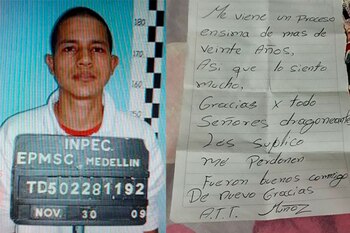 INPEC.
EPMSC, MEDELLIN
TD502281192
NOV. 30 09
Me viene un proceso
ensima de mas de
veinte Años,
Asi que lo siento
mucho,
Gracias x todo
Señores dragoneante
Les suplico
me Perdonen
Fueron buenos conmigo
De nuevo Gracias
A.T.T. Muñoz